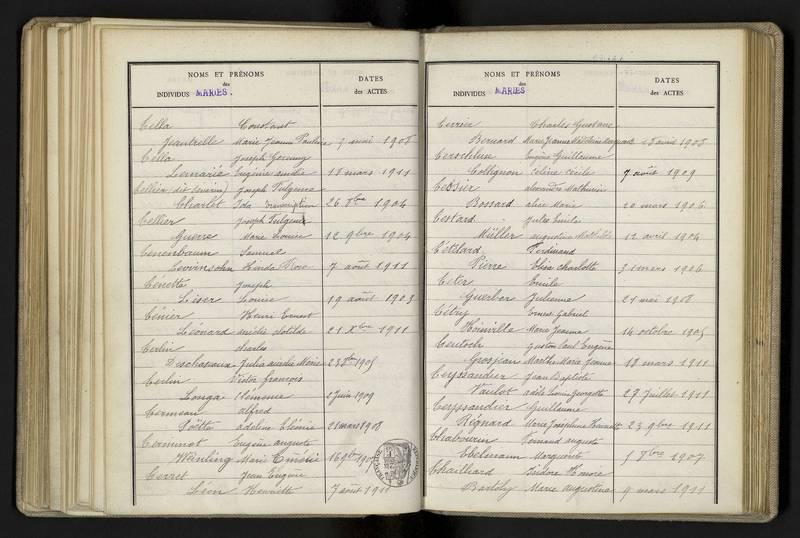 NOMS ET PRÉNOMS
des
INDIVIDUS MARIÉS.
DATES
des ACTES
Cella Constant
Jeantrelle Marie Jeanne Pauline 9 mai 1908
Cella Joseph
Lemarié Eugénie 18 mars 1911
Cellier (dit Séverin) Joseph Fulgence
Charlot Ida transcription 26 8bre 1904
Cellier Joseph Fulgence
Guerre Marie Louise 12 9bre 1904
Cenenbaum Samuel
Levinsohn Hinda 7 août 1911
Cénette Joseph
Liser Louise 19 août 1903
Cénier Henri Ernest
Léonard Clotilde 21 Xbre 1911
Cerlin Charles
Julia Marie
Cerlin Victor François
Longa Clémence 2 juin 1909
Cermeau Alfred
Adeline Clémie 21 mars 1908
Cerminot Eugène Auguste
Marie
Cerret Jean Eugène
Léon Henriette 7 août 1911
NOMS ET PRÉNOMS
des
INDIVIDUS MARIÉS
DATES
des ACTES
Cerrier Charles Gustave
Bernard Marie Jeanne avril 1908
Eugène Guillaume
Collignon Céline Cécile 7 août 1909
Cessier Alexandre Mathurin
Bossard Alice Marie 20 mars 1906
Cestard Jules Emile
Müller Augustine Mathilde 12 avril 1904
Cétilard Ferdinand
Pierre Elisa Charlotte 31 mars 1906
Ceter Emile
Guerber Julienne 21 mai 1908
Cétry Ernest Gabriel
Marie Jeanne 14 octobre 1905
Ceutoch Gaston Paul Eugène
Grosjean Marthe Marie Jeanne 18 mars 1911
Ceyssandier Jean Baptiste
Vaulot Adèle Louise Georgette 27 juillet 1911
Ceyssandier Guillaume
Régnard Marie Joséphine Henriette 23 9bre 1911
Chabourin Fernand Auguste
Ebelmann Marguerite 5 7bre 1907
Chailhard Isidore Honoré
Bartoly Marie Augustine 9 mars 1911